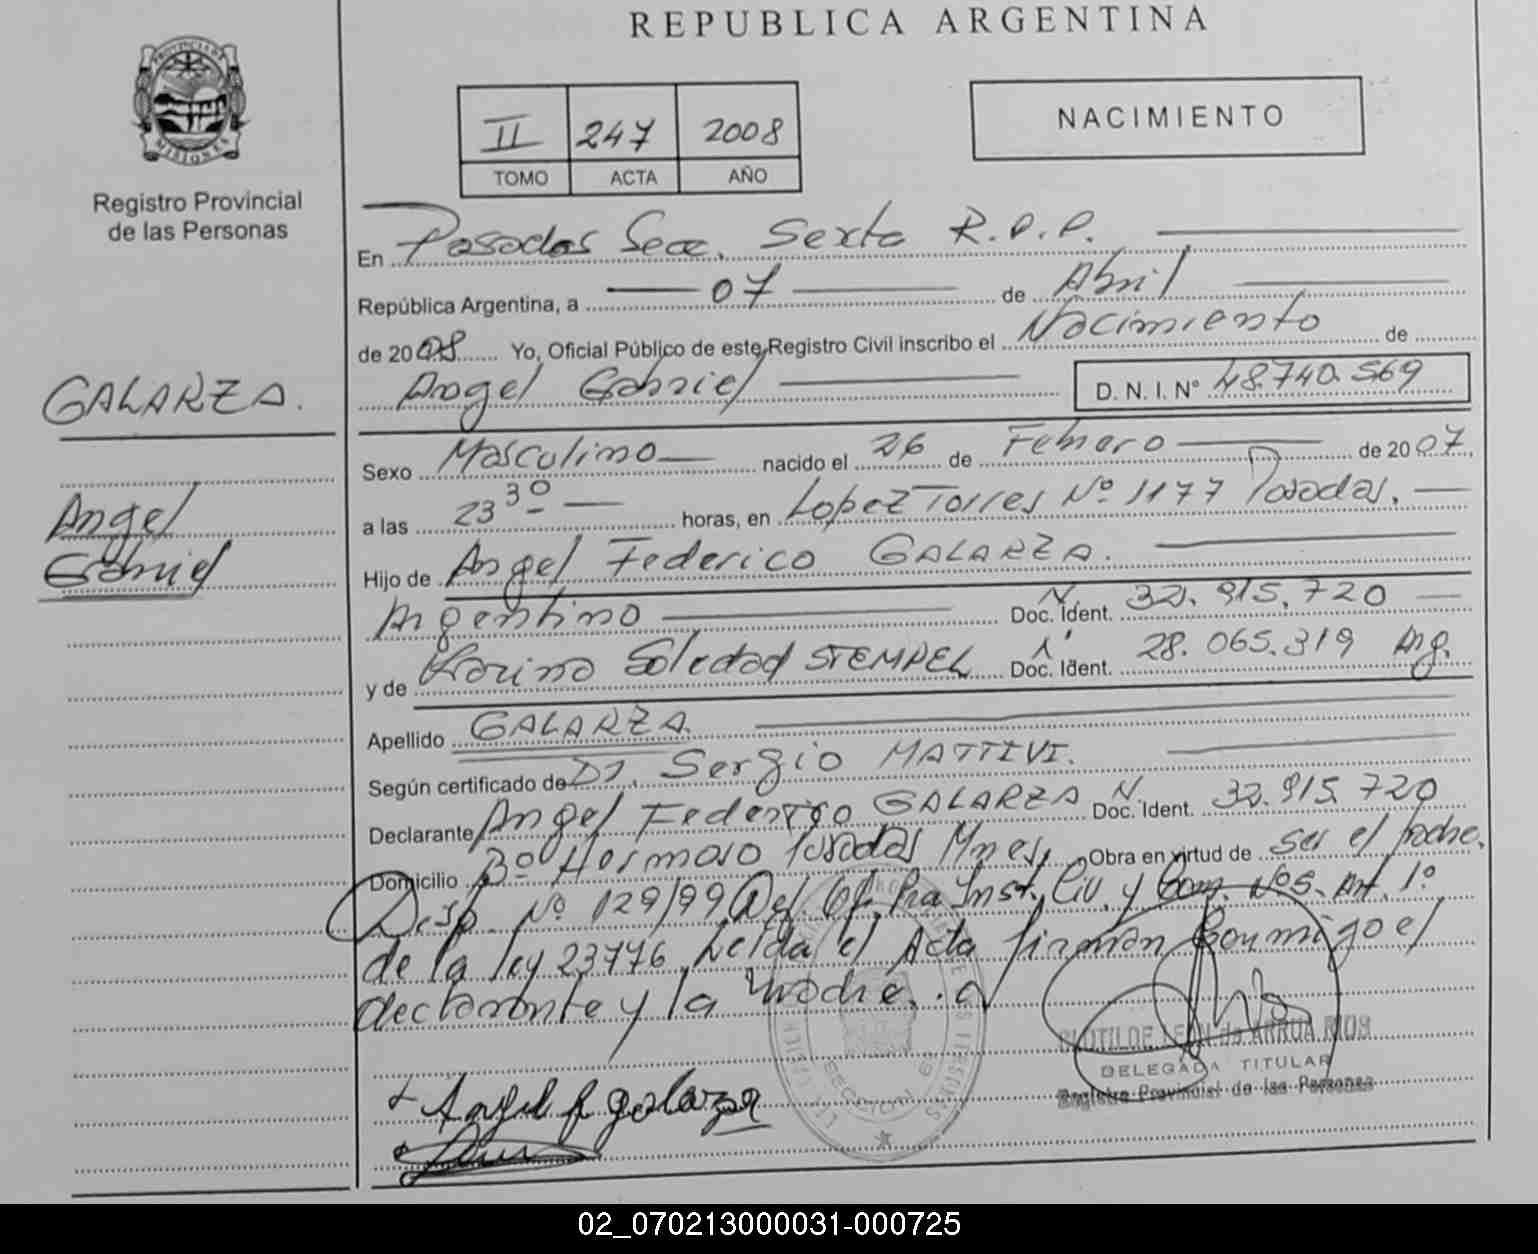 REPUBLICA ARGENTINA
PROVINCIA DE MISIONES
Registro Provincial
de las Personas
II 247 2008
TOMO ACTA AÑO
NACIMIENTO
En Posadas Secc. Sexta R.P.P.
República Argentina, a 07 de Abril
de 2008 Yo, Oficial Público de este Registro Civil inscribo el Nacimiento de
Angel Gabriel D. N. I. Nº 48.740.569
GALARZA.
Angel
Gabriel
Sexo Masculino nacido el 26 de Febrero de 2007,
a las 23 30 horas, en Lopez Torres Nº 1177 Posadas.
Hijo de Angel Federico GALARZA.
Argentino Doc. Ident. 32.915.720
y de Karina Soledad STEMPEL Doc. Ident. 28.065.319 Arg.
Apellido GALARZA
Según certificado de Dr. Sergio MATTIVI.
Declarante Angel Federico GALARZA Doc. Ident. 32.915.720
Domicilio Bº Hermoso Posadas Mnes, Obra en virtud de ser el padre.
Disp. Nº 129/99 Def. Of. Pra Inst. Civ. y Com. Nº5. Art. 1º
de la ley 23776 Leida el Acta firman conmigo el
declarante y la madre.
Angel F galarza
CLOTILDE LEON de ARRUA RIOS
DELEGADA TITULAR
Registro Provincial de las Personas
02_070213000031-000725